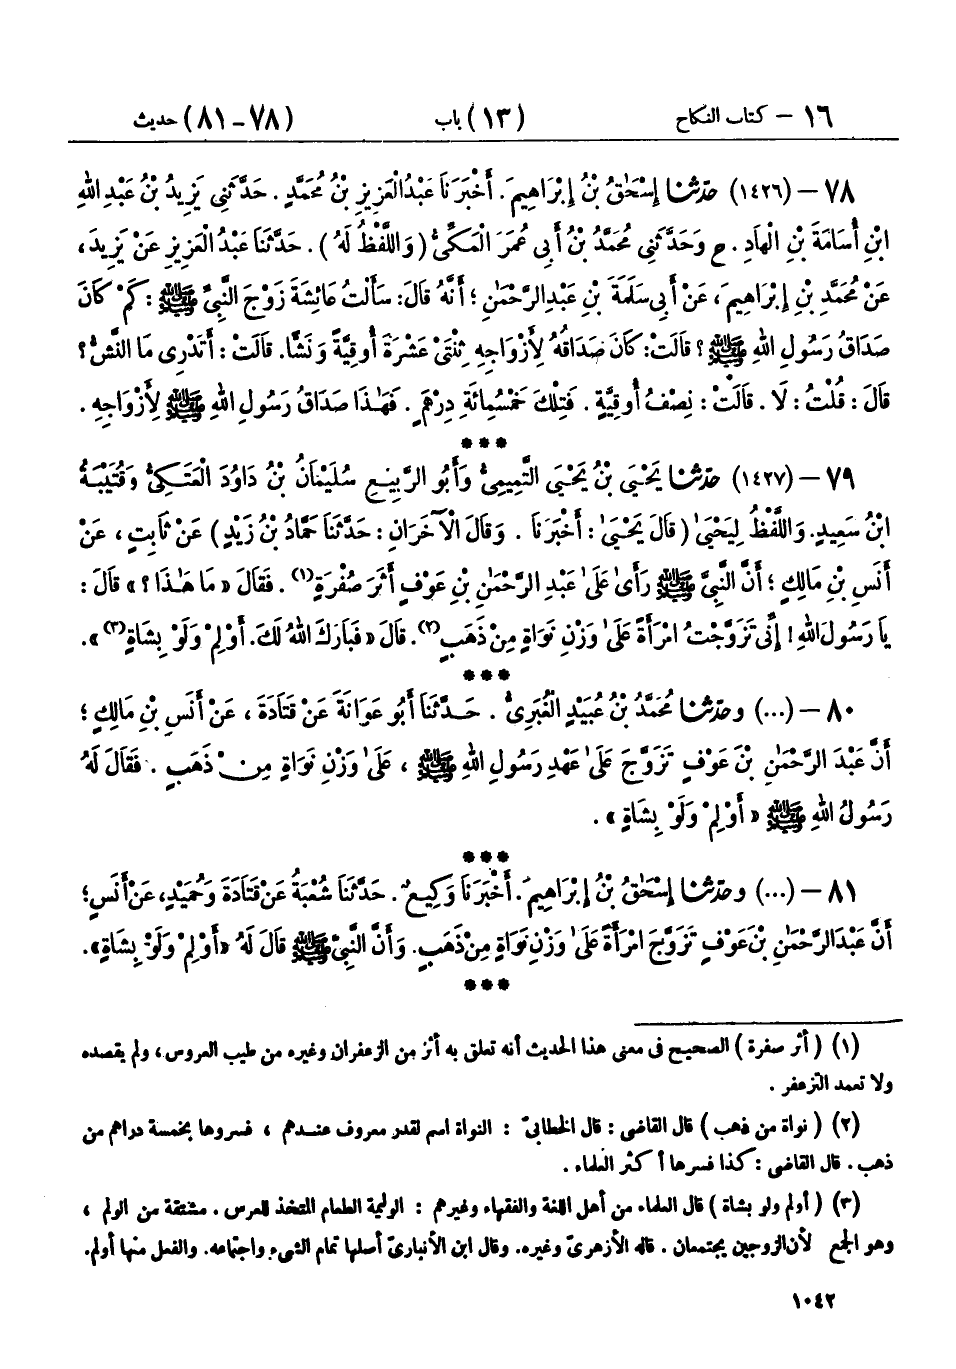 ١٦ – كتاب النكاح (١٣) باب (٧٨-٨١) حديث
٧٨ – (١٤٢٦) حَدَّثَنَا إِسْحَٰقُ بْنُ إِبْرَاهِيمَ. أَخْبَرَنَا عَبْدُ الْعَزِيزِ بْنُ مُحَمَّدٍ. حَدَّثَنِي يَزِيدُ بْنُ عَبْدِ اللهِ
ابْنِ أُسَامَةَ بْنِ الْهَادِ. ح وَحَدَّثَنِي مُحَمَّدُ بْنُ أَبِي عُمَرَ الْمَكِّيُّ (وَاللَّفْظُ لَهُ). حَدَّثَنَا عَبْدُ الْعَزِيزِ عَنْ يَزِيدَ،
عَنْ مُحَمَّدِ بْنِ إِبْرَاهِيمَ، عَنْ أَبِي سَلَمَةَ بْنِ عَبْدِ الرَّحْمَٰنِ؛ أَنَّهُ قَالَ: سَأَلْتُ عَائِشَةَ زَوْجَ النَّبِيِّ ﷺ: كَمْ كَانَ
صَدَاقُ رَسُولِ اللهِ ﷺ؟ قَالَتْ: كَانَ صَدَاقُهُ لِأَزْوَاجِهِ ثِنْتَيْ عَشْرَةَ أُوقِيَّةً وَنَشًّا. قَالَتْ: أَتَدْرِي مَا النَّشُّ؟
قَالَ: قُلْتُ: لَا. قَالَتْ: نِصْفُ أُوقِيَّةٍ. فَتِلْكَ خَمْسُمِائَةِ دِرْهَمٍ. فَهَٰذَا صَدَاقُ رَسُولِ اللهِ ﷺ لِأَزْوَاجِهِ.
***
٧٩ – (١٤٢٧) حَدَّثَنَا يَحْيَىٰ بْنُ يَحْيَىٰ التَّمِيمِيُّ وَأَبُو الرَّبِيعِ سُلَيْمَانُ بْنُ دَاوُدَ الْعَتَكِيُّ وَقُتَيْبَةُ
ابْنُ سَعِيدٍ. وَاللَّفْظُ لِيَحْيَىٰ (قَالَ يَحْيَىٰ: أَخْبَرَنَا. وَقَالَ الْآخَرَانِ: حَدَّثَنَا حَمَّادُ بْنُ زَيْدٍ) عَنْ ثَابِتٍ، عَنْ
أَنَسِ بْنِ مَالِكٍ؛ أَنَّ النَّبِيَّ ﷺ رَأَىٰ عَلَىٰ عَبْدِ الرَّحْمَٰنِ بْنِ عَوْفٍ أَثَرَ صُفْرَةٍ(١). فَقَالَ «مَا هَٰذَا؟» قَالَ:
يَا رَسُولَ اللهِ! إِنِّي تَزَوَّجْتُ امْرَأَةً عَلَىٰ وَزْنِ نَوَاةٍ مِنْ ذَهَبٍ(٢). قَالَ «فَبَارَكَ اللهُ لَكَ. أَوْلِمْ وَلَوْ بِشَاةٍ(٣)».
***
٨٠ – (...) وحَدَّثَنَا مُحَمَّدُ بْنُ عُبَيْدٍ الْغُبَرِيُّ. حَدَّثَنَا أَبُو عَوَانَةَ عَنْ قَتَادَةَ، عَنْ أَنَسِ بْنِ مَالِكٍ؛
أَنَّ عَبْدَ الرَّحْمَٰنِ بْنَ عَوْفٍ تَزَوَّجَ عَلَىٰ عَهْدِ رَسُولِ اللهِ ﷺ، عَلَىٰ وَزْنِ نَوَاةٍ مِنْ ذَهَبٍ. فَقَالَ لَهُ
رَسُولُ اللهِ ﷺ «أَوْلِمْ وَلَوْ بِشَاةٍ».
***
٨١ – (...) وحَدَّثَنَا إِسْحَٰقُ بْنُ إِبْرَاهِيمَ. أَخْبَرَنَا وَكِيعٌ. حَدَّثَنَا شُعْبَةُ عَنْ قَتَادَةَ وَحُمَيْدٍ، عَنْ أَنَسٍ؛
أَنَّ عَبْدَ الرَّحْمَٰنِ بْنَ عَوْفٍ تَزَوَّجَ امْرَأَةً عَلَىٰ وَزْنِ نَوَاةٍ مِنْ ذَهَبٍ. وَأَنَّ النَّبِيَّ ﷺ قَالَ لَهُ «أَوْلِمْ وَلَوْ بِشَاةٍ».
***
(١) (أثر صفرة) الصحيح فى معنى هذا الحديث أنه تعلق به أثر من الزعفران وغيره من طيب العروس، ولم يقصده
ولا تعمد التزعفر.
(٢) (نواة من ذهب) قال القاضى: قال الخطابىّ: النواة اسم لقدر معروف عندهم، فسروها بخمسة دراهم من
ذهب. قال القاضى: كذا فسرها أكثر العلماء.
(٣) (أولم ولو بشاة) قال العلماء من أهل اللغة والفقهاء وغيرهم: الوليمة الطعام المتخذ للعرس. مشتقة من الولم،
وهو الجمع لأن الزوجين يجتمعان. قاله الأزهرىّ وغيره. وقال ابن الأنبارىّ أصلها تمام الشىء واجتماعه. والفعل منها أولم.
١٠٤٢